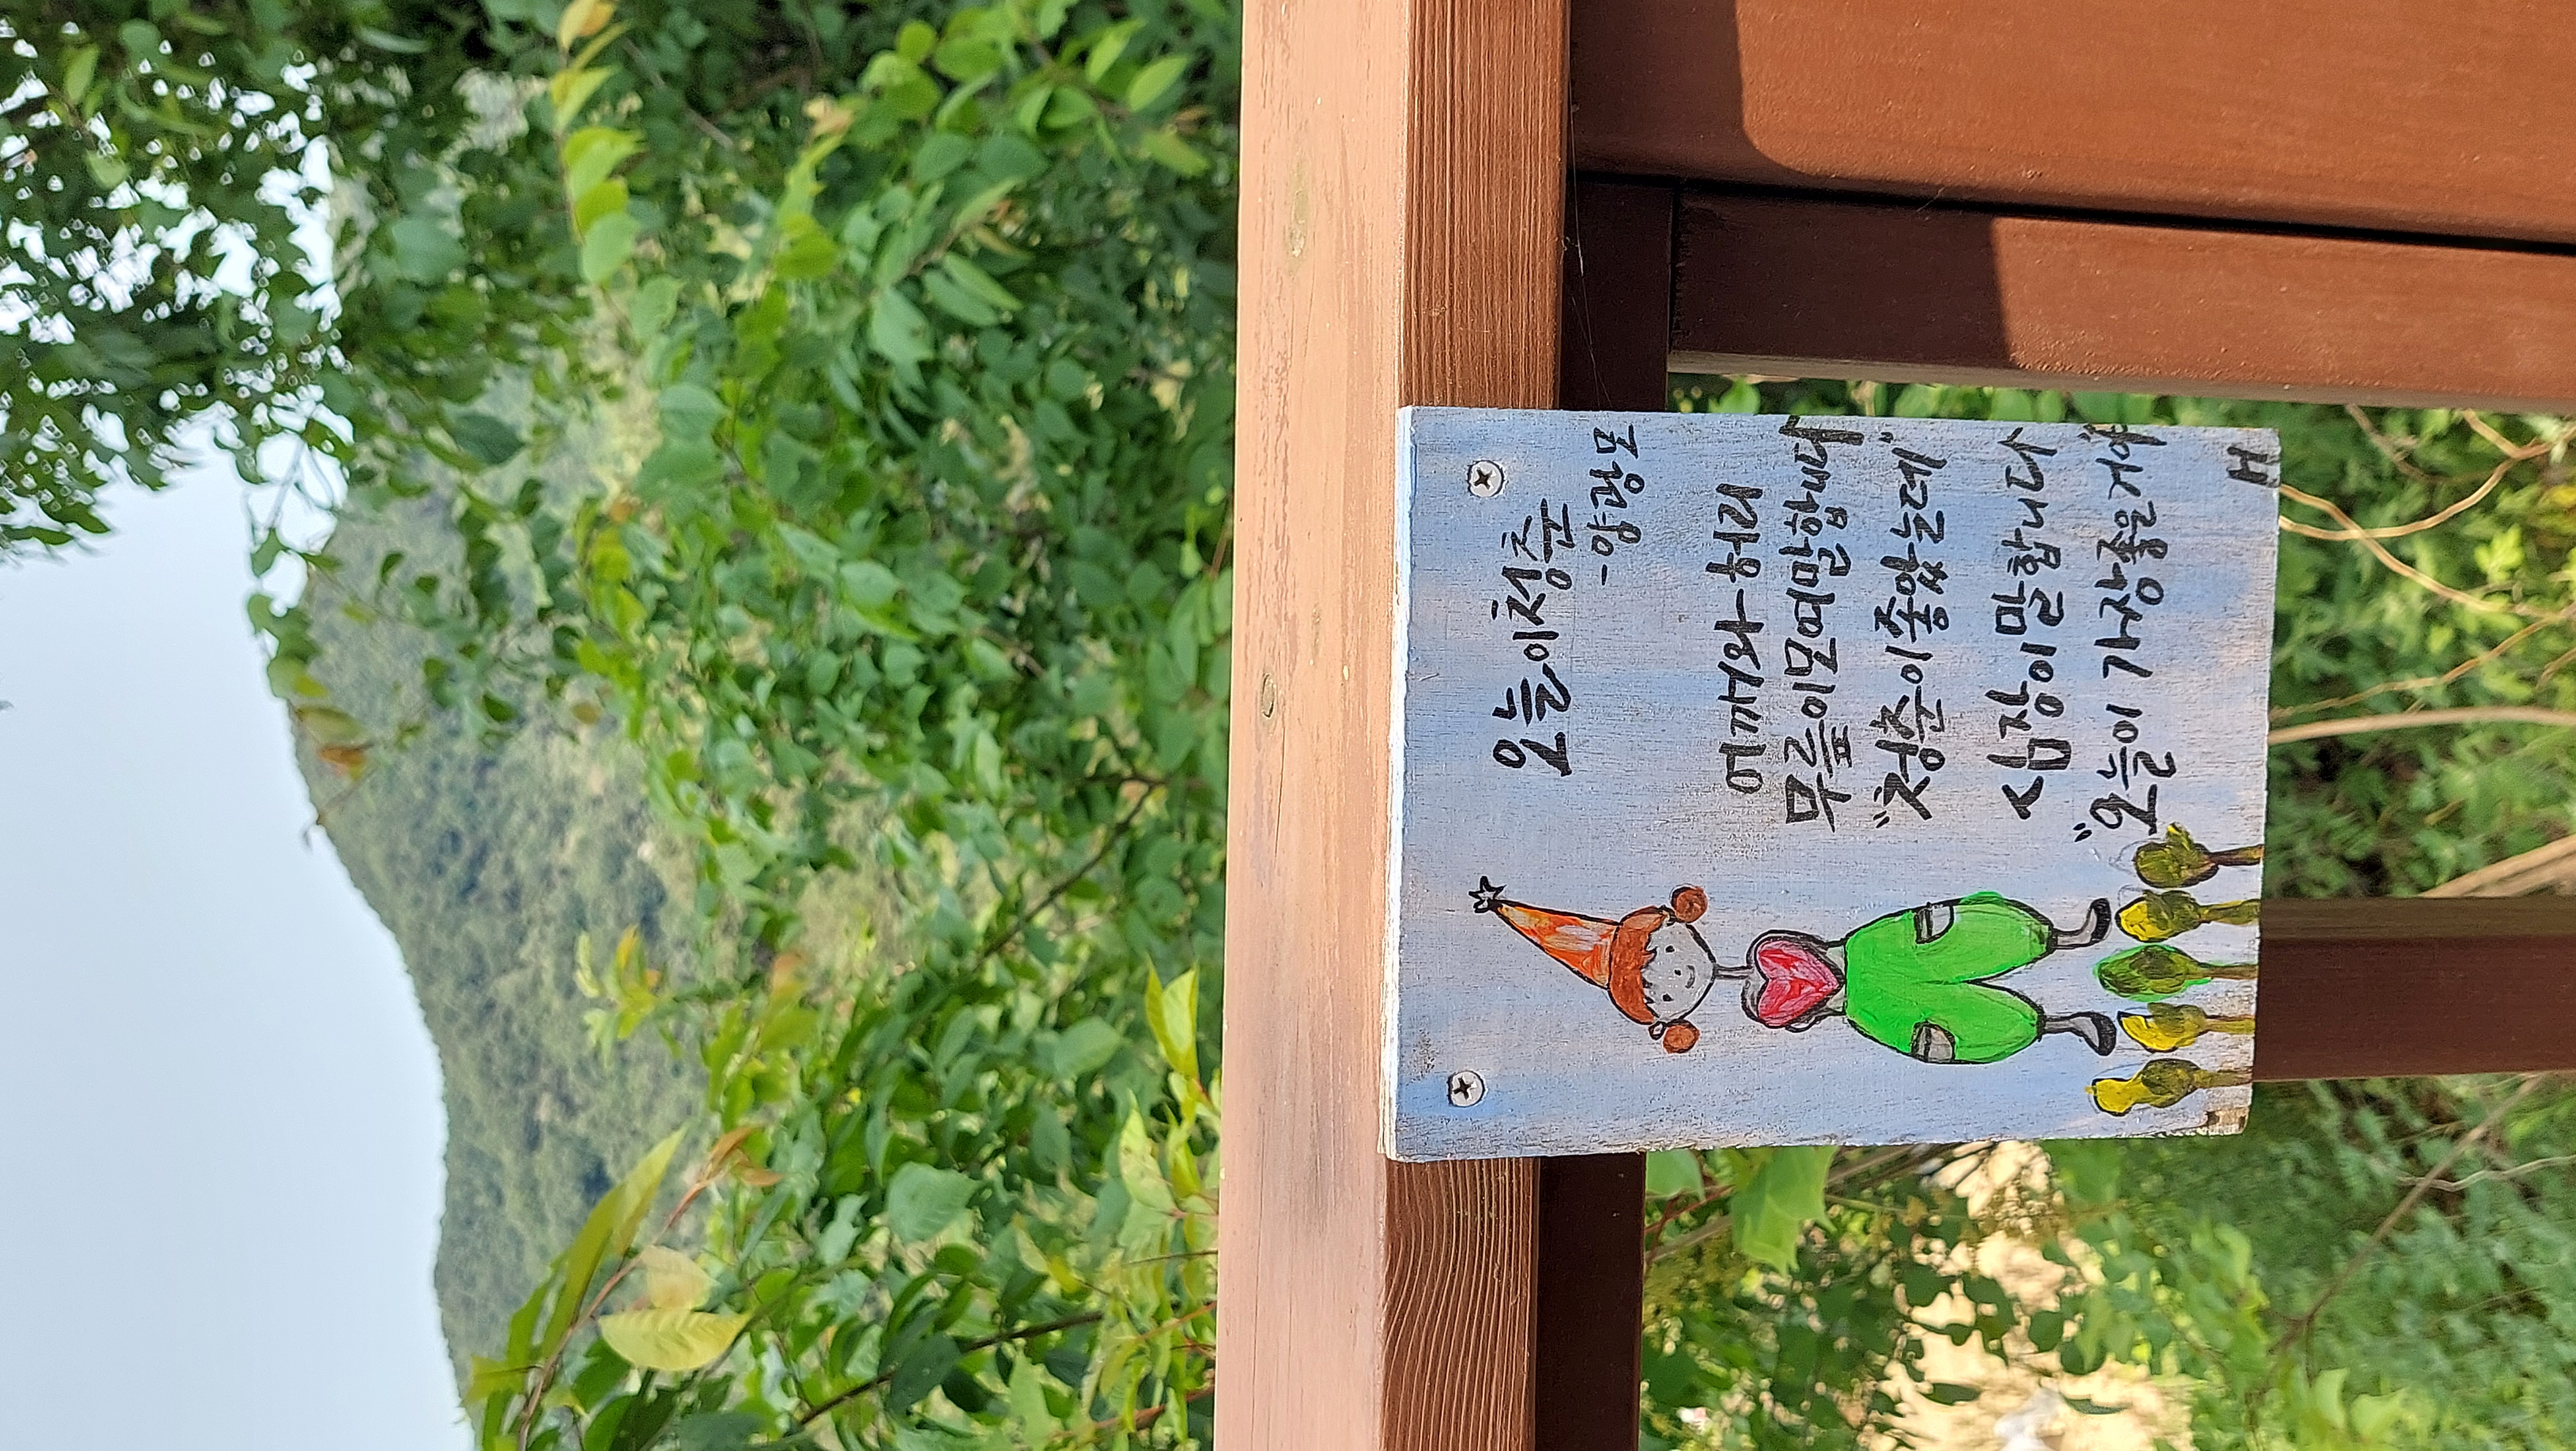 오늘이청춘
-양광모
어깨와 허리
무릎이모여말합니다
"청춘이좋았는데"
심장이말합니다
"오늘이가장좋을거야"
H